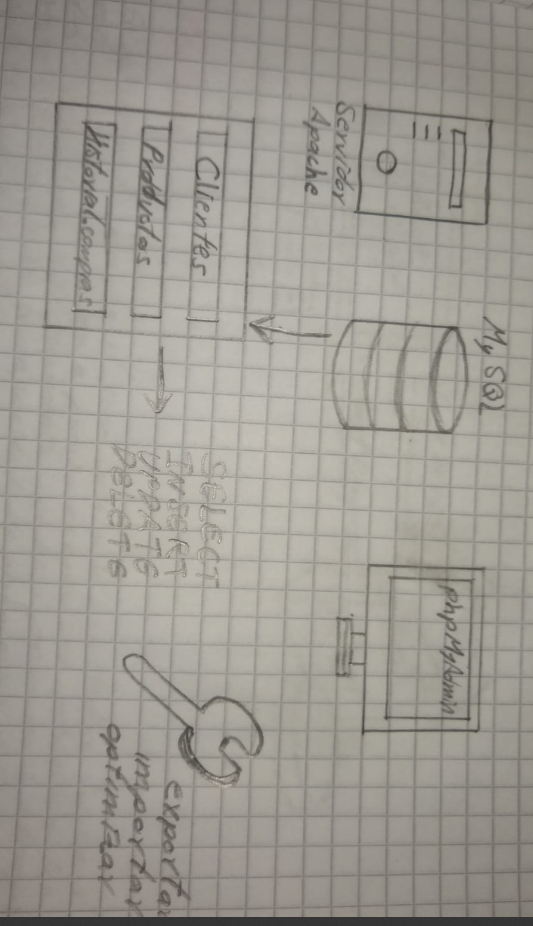 Servidor
Apache
MySQL
phpMyAdmin
Clientes
Productos
Historial.compras
SELECT
INSERT
UPDATE
DELETE
exportar
importar
optimizar